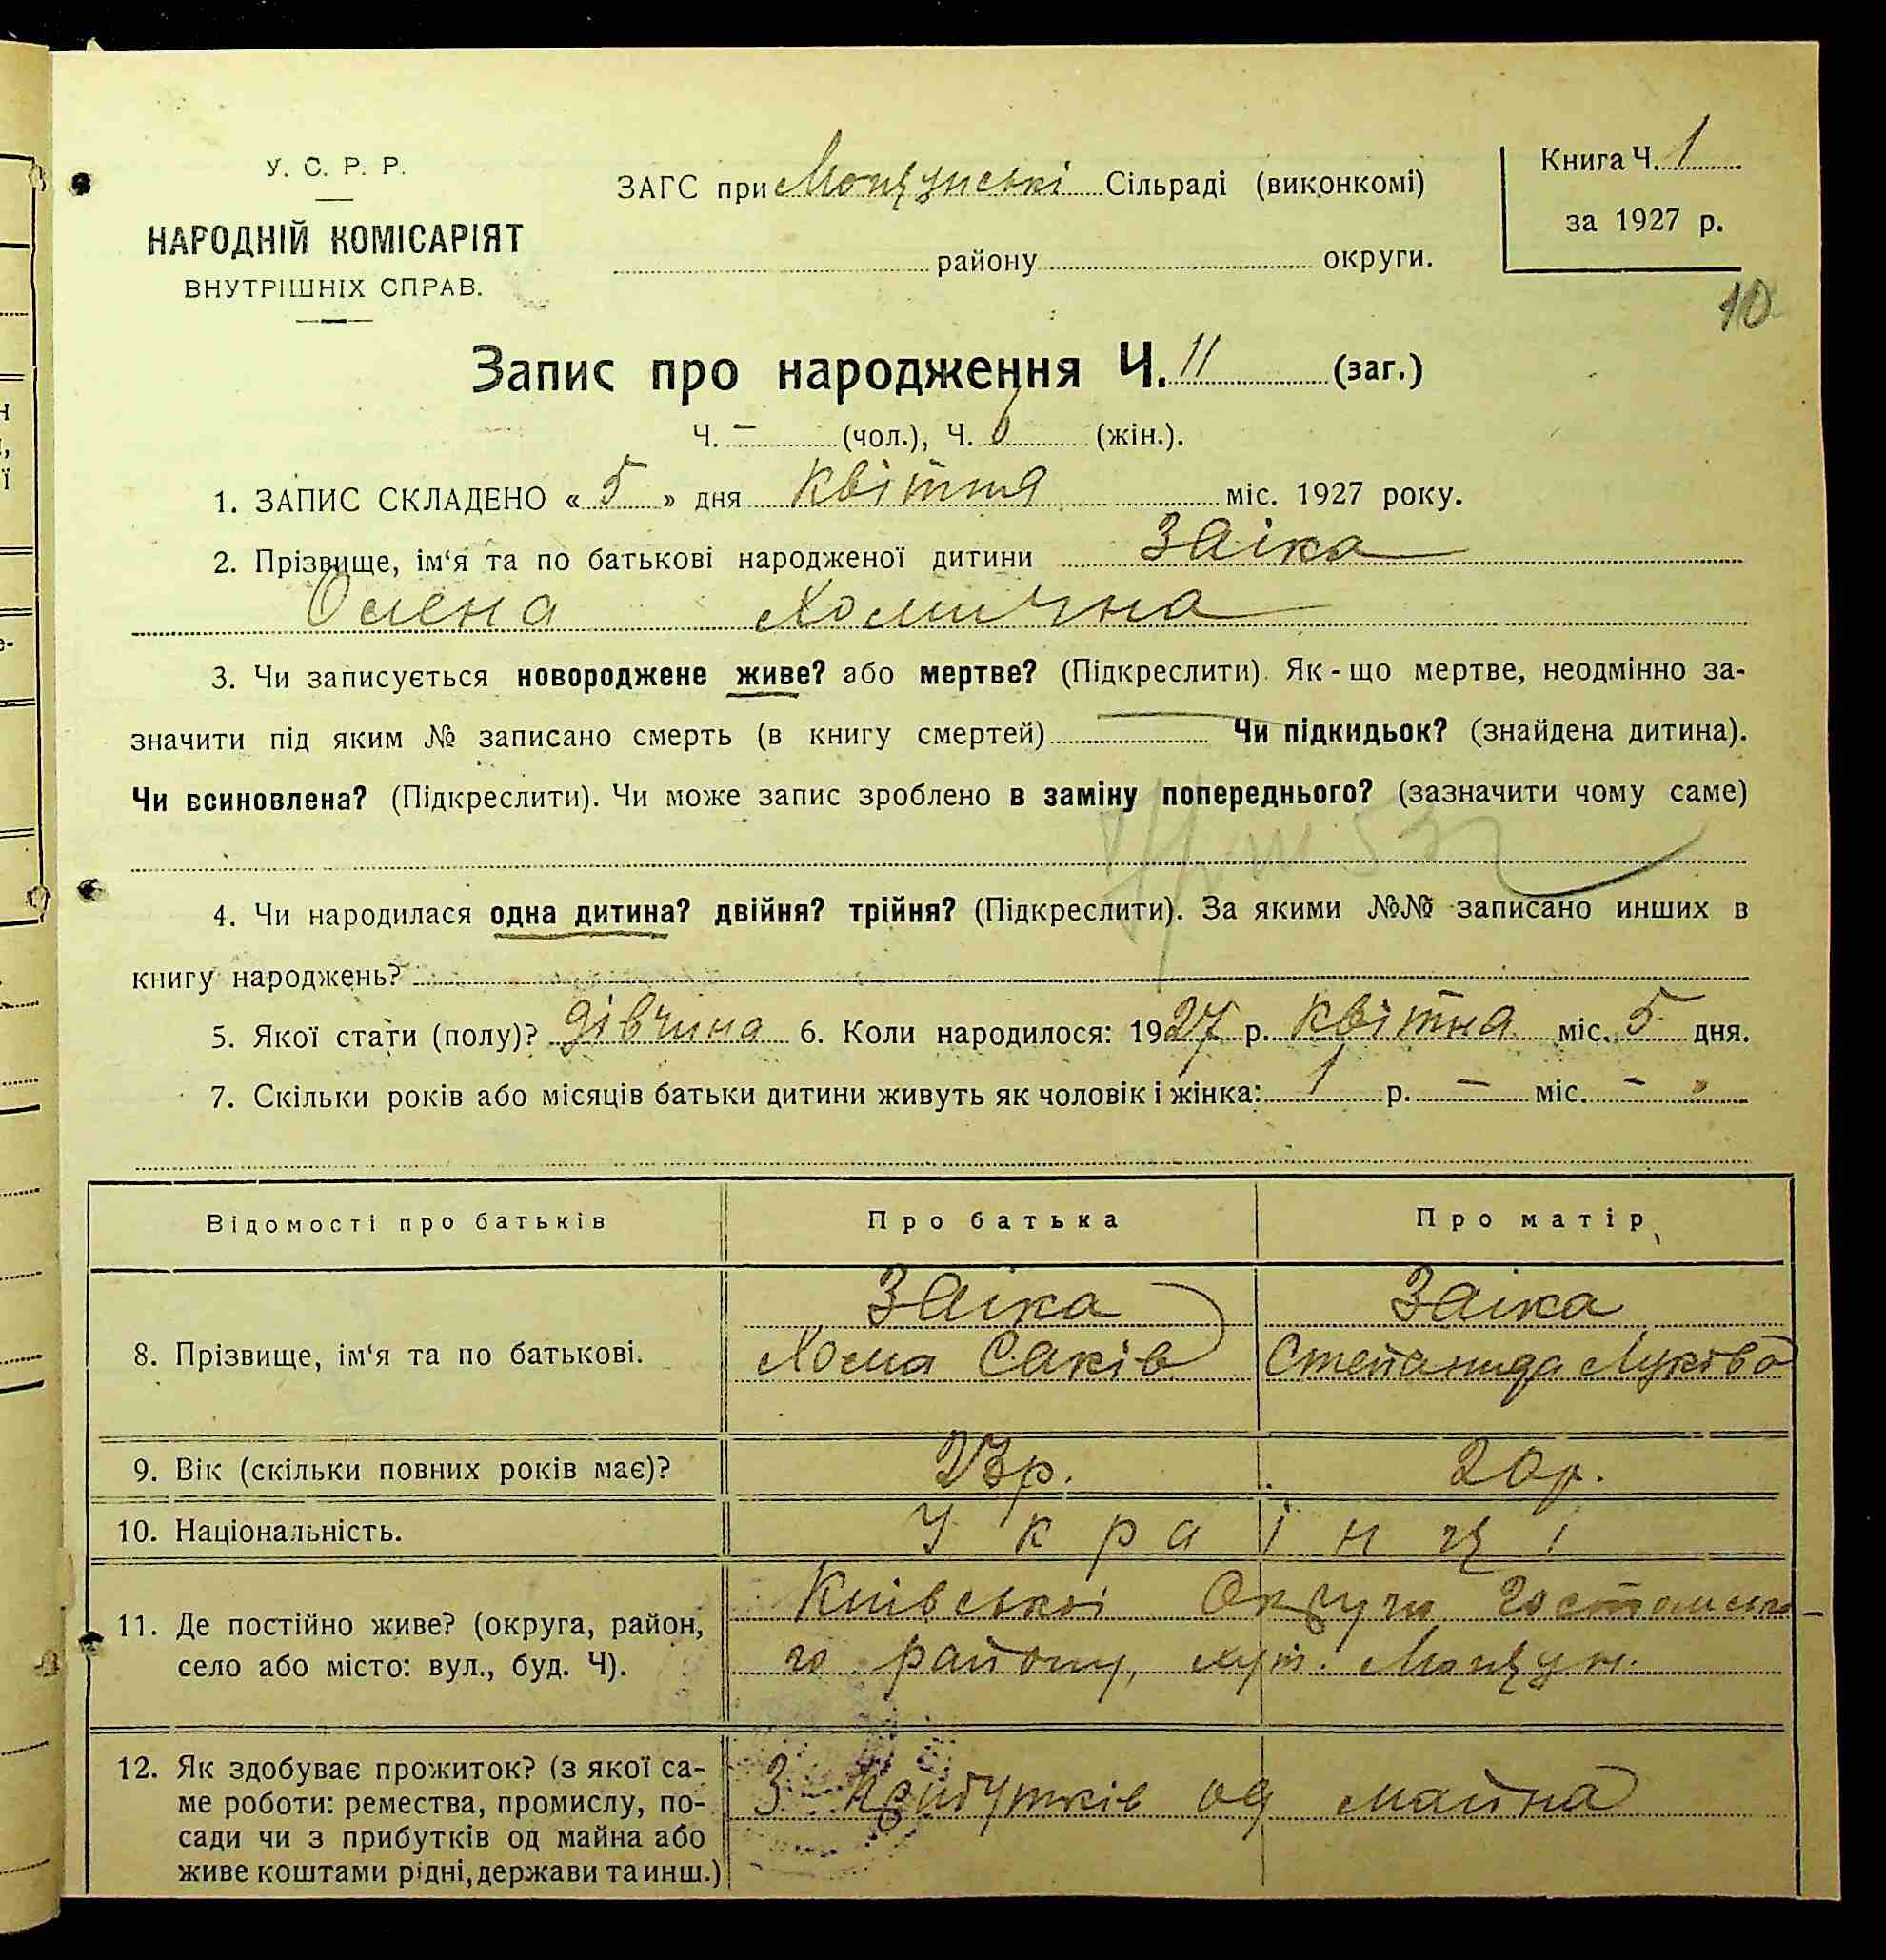 У. С. Р. Р.
НАРОДНІЙ КОМІСАРІЯТ
ВНУТРІШНІХ СПРАВ.
ЗАГС при Мощунські Сільраді (виконкомі)
району округи.
Книга Ч. 1
за 1927 р.
10
Запис про народження Ч. 11 (заг.)
Ч. – (чол.), Ч. 6 (жін.).
1. ЗАПИС СКЛАДЕНО « 5 » дня квітня міс. 1927 року.
2. Прізвище, ім‘я та по батькові народженої дитини Заіка
Олена Хомична
3. Чи записується новороджене живе? або мертве? (Підкреслити). Як-що мертве, неодмінно за-
значити під яким № записано смерть (в книгу смертей) Чи підкидьок? (знайдена дитина).
Чи всиновлена? (Підкреслити). Чи може запис зроблено в заміну попереднього? (зазначити чому саме)
4. Чи народилася одна дитина? двійня? трійня? (Підкреслити). За якими №№ записано инших в
книгу народжень?
5. Якої стати (полу)? дівчина 6. Коли народилося: 1927 р. квітня міс. 5 дня.
7. Скільки років або місяців батьки дитини живуть як чоловік і жінка: 1 р. – міс. – »
Відомості про батьків Про батька Про матір
8. Прізвище, ім‘я та по батькові.
Заіка Заіка
Хома Саків Степанида Луківа
9. Вік (скільки повних років має)? 23р. 20р.
10. Національність. Українці
11. Де постійно живе? (округа, район,
село або місто: вул., буд. Ч).
Київської Округи Гостомсько-
го району, хут. Мощун.
12. Як здобуває прожиток? (з якої са-
ме роботи: ремества, промислу, по-
сади чи з прибутків од майна або
живе коштами рідні, держави та инш.)
З прибутків од майна